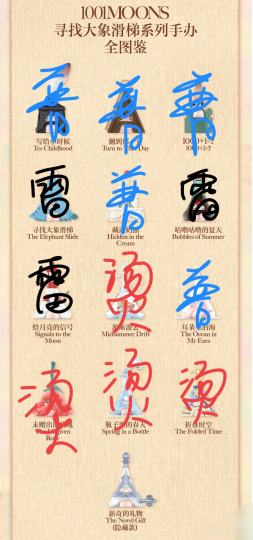 1001MOONS
寻找大象滑梯系列手办
全图鉴
普 普 普
写给小时候
To: Childhood
Turn to Day
1000+1=?
雷 普 雷
寻找大象滑梯
The Elephant Slide
Hidden in the
Cream
咕噜咕噜的夏天
Bubbles of Summer
雷 烫 普
给月亮的信号
Signals to the
Moon
Midsummer Drift
耳朵里的海
The Ocean in
My Ears
烫 烫 烫
瓶子里的春天
Spring in a Bottle
折叠时空
The Folded Time
新奇的礼物
The Novel Gift
(隐藏款)